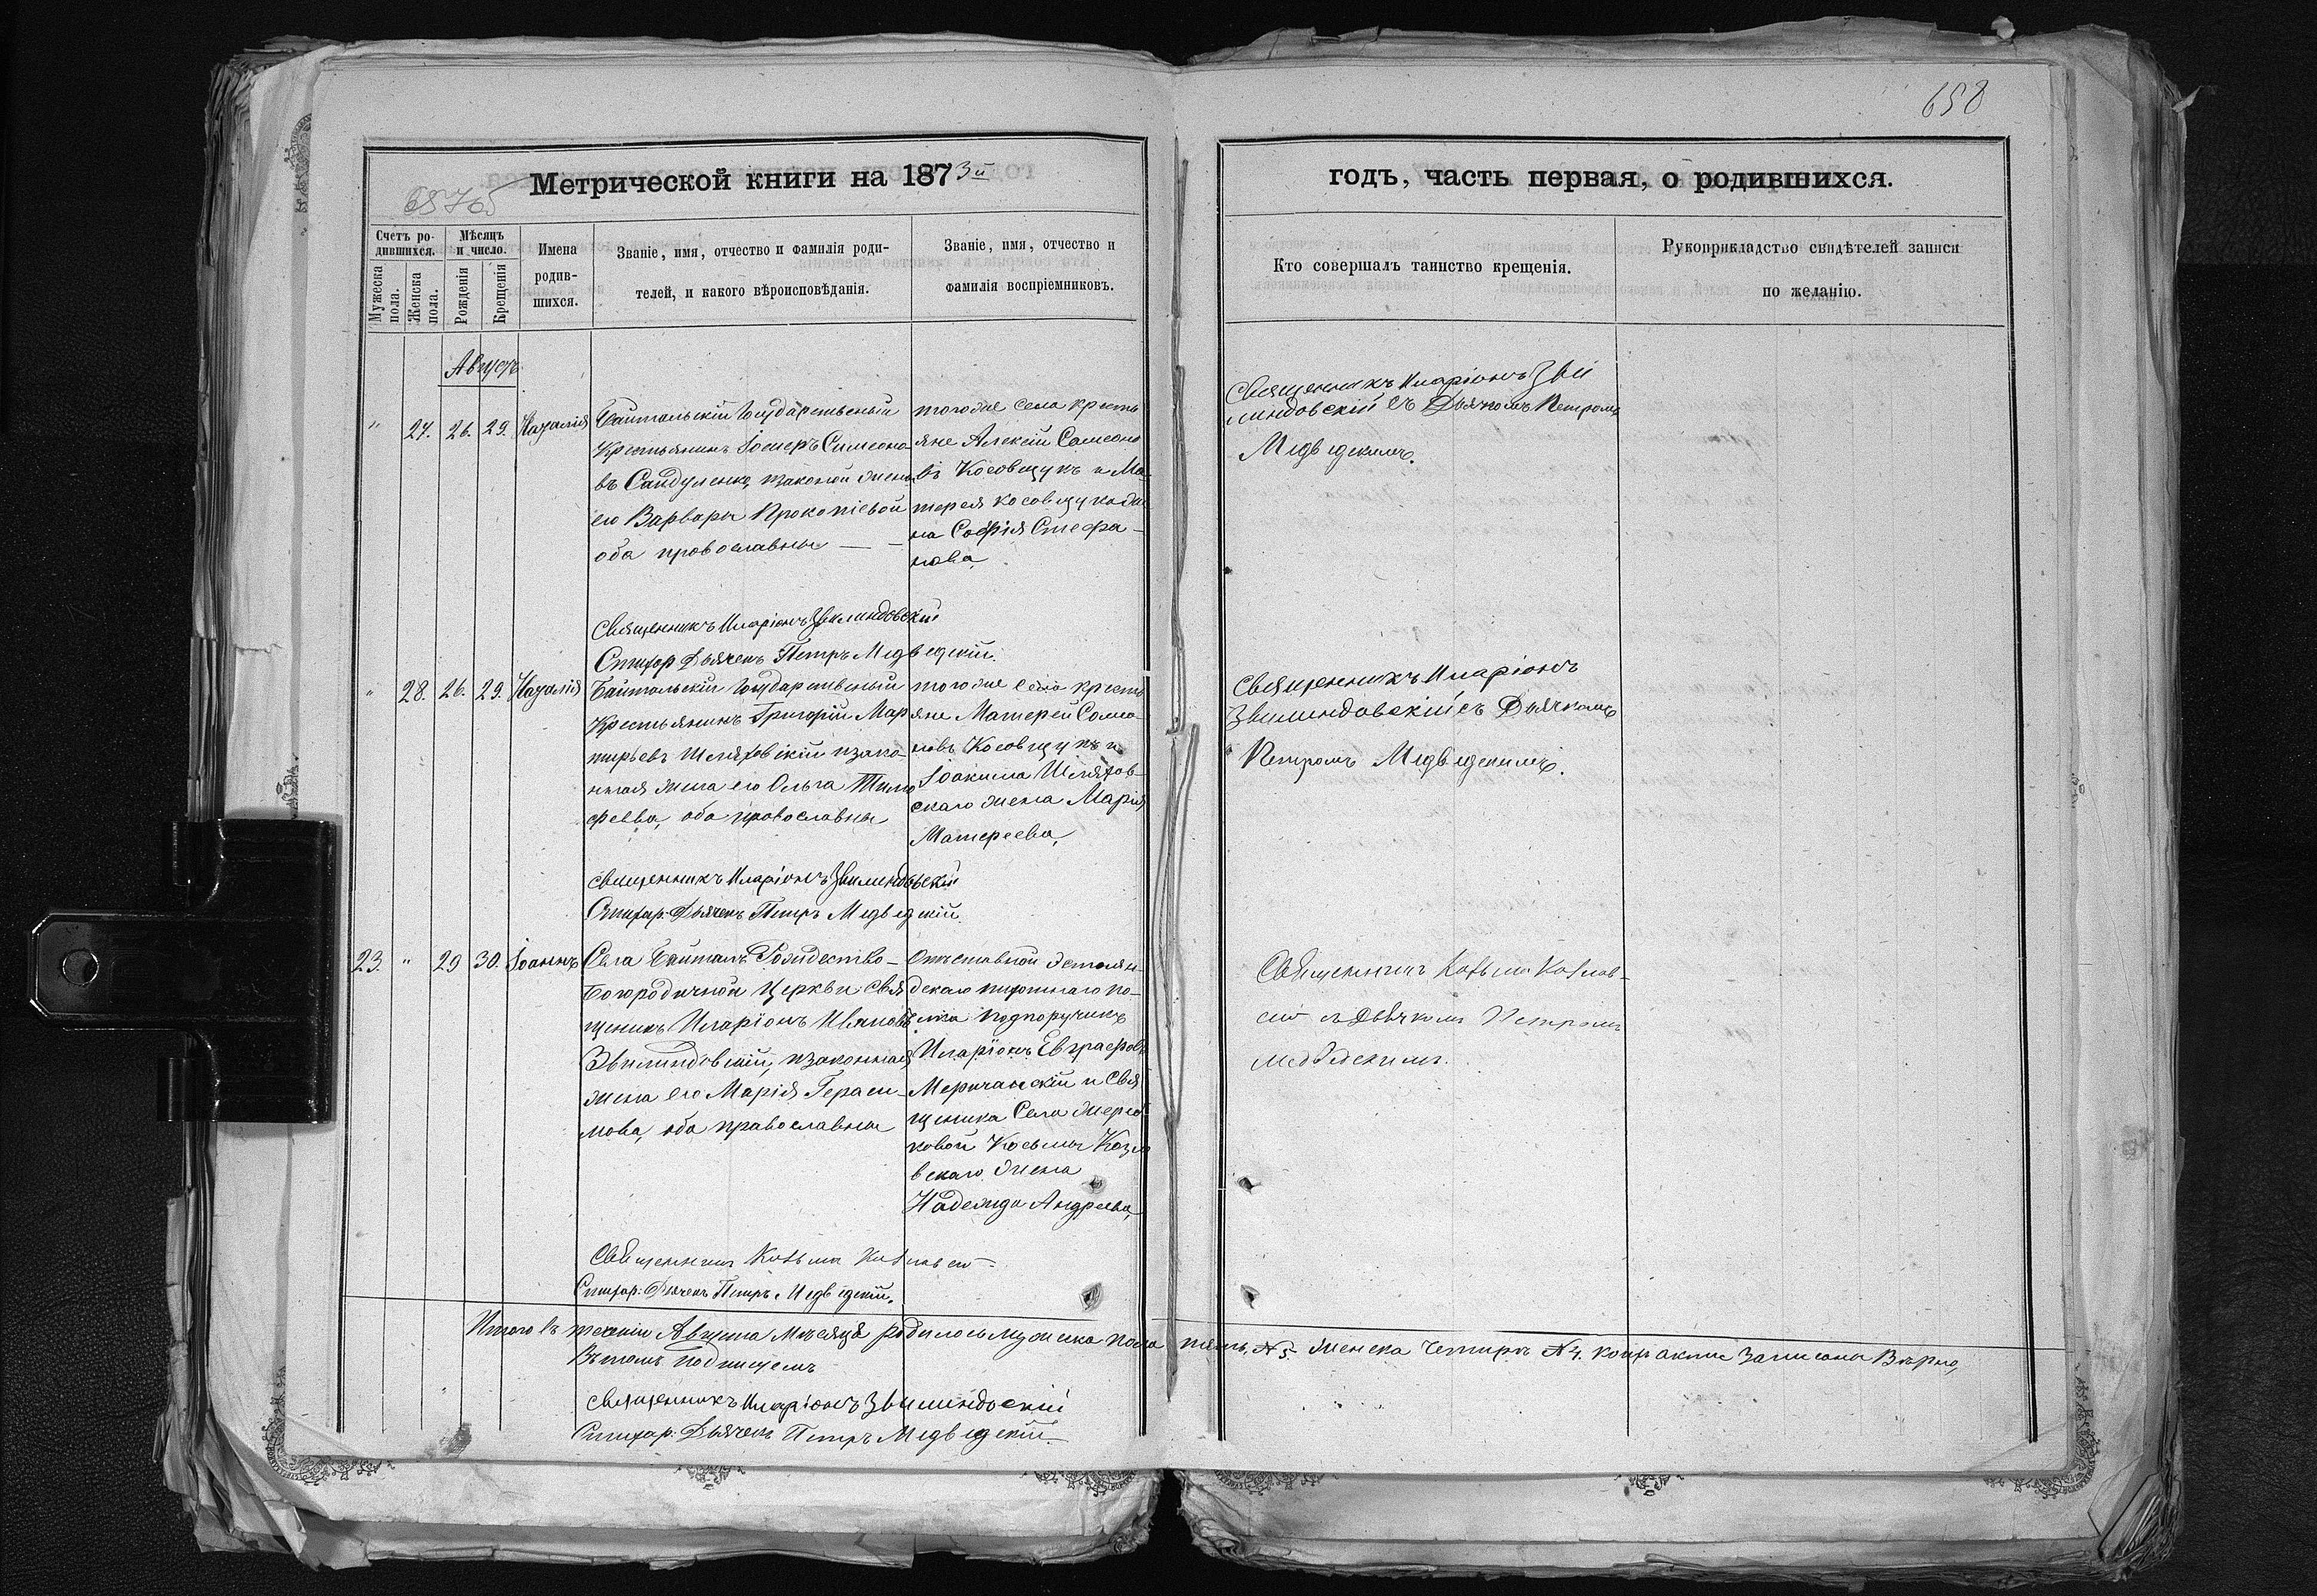 658
Метрической книги на 1873й
годъ, часть первая, о родившихся.
Счетъ родившихся.
Мужеска пола.
Женска пола.
Мѣсяцъ и число.
Рожденія
Крещенія
Имена родившихся.
Званіе, имя, отчество и фамилія роди-
телей, и какого вѣроисповѣданія.
Званіе, имя, отчество и
фамилія воспріемниковъ.
Кто совершалъ таинство крещенія.
Рукоприкладство свидѣтелей записи
по желанію.
Августъ
" 27. 26. 29. Наталія
Байтальскій Государственый
Крестьянинъ Симеоно-
въ Сандуленко, изаконой жены
его Варвары Прокопіевой
оба провославные
тогоже села кресть
яне Алексій Самсоно
въ Косовщукъ и Ма-
терея косовщука же
на Софія Стефа-
нова
Священникъ Иларіонъ Зви
линдовскій съ Дьячкомъ Петромъ
Медведскимъ.
Священникъ Иларіонъ Звилиндовский
Стихар Дьячекъ Петръ Медведскій.
" 28. 26. 29. Наталія
Байтальскій Государственый
Крестьянинъ Григорій Мар
тирьевъ Шеляховскій изако-
ная жена его Ольга Тимо
феева, оба провославны
тогоже села кресть
яне Матерей Самсо-
новъ Косовщукъ и
Іоакима Шеляхов-
скаго жена Марія
Матереева,
Священникъ Иларіонъ
Звилиндовскій съ Дьячкомъ
Петромъ Медведскимъ.
священникъ Иларіонъ Звилиндовскій
Стихар: Дьячекъ Петръ Медведскій.
23. " 29 30. Іоаннъ
Села Байталъ Рождество-
Богородичной Церкви Свя
щеникъ Иларіонъ Ивановъ
Звилиндовскій, изаконная
жена его Марія Гераси-
мова, оба православные
Отставной Эстлян-
дскаго пехотнаго по-
лка подпоручикъ
Иларіонъ Евграфовъ
Меричанскій и Свя
щеника Села Жереб
ковой Косьмы Козло
вскаго жена
Надежда Андреева,
Священникъ Козьма Козлов-
скій съ Дьячкомъ Петромъ
Медведскимъ.
Священникъ Козьма Козловскій
Стихар: Дьячекъ Петръ Медведскій.
Итого въ теченіи Августа Месяца родилось мужска пола пять, №5. женска Четыри №4. кои актами Записаны Верно,
Вътомъ подпишемъ
священникъ Иларіонъ Звилиндовскій
Стихар: Дьячекъ Петръ Медведскій